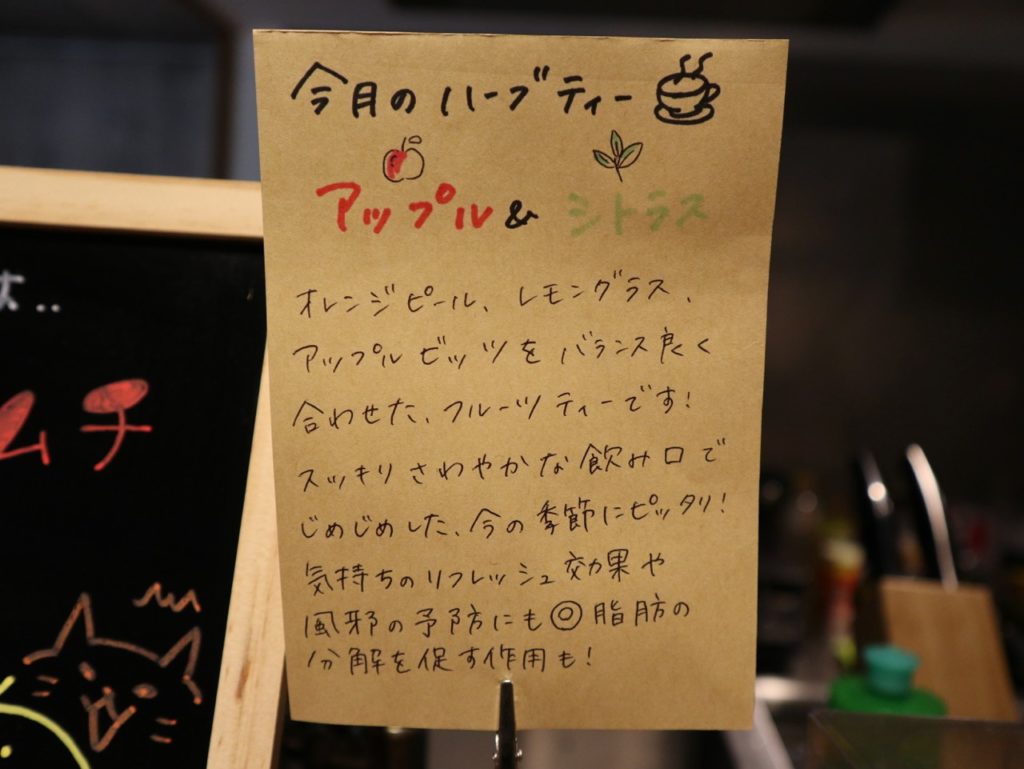 今月のハーブティー
アップル & シトラス
オレンジピール、レモングラス、
アップルビッツをバランス良く
合わせた、フルーツティーです!
スッキリさわやかな飲み口で
じめじめした、今の季節にピッタリ!
気持ちのリフレッシュ効果や
風邪の予防にも◎脂肪の
分解を促す作用も!
ムチ